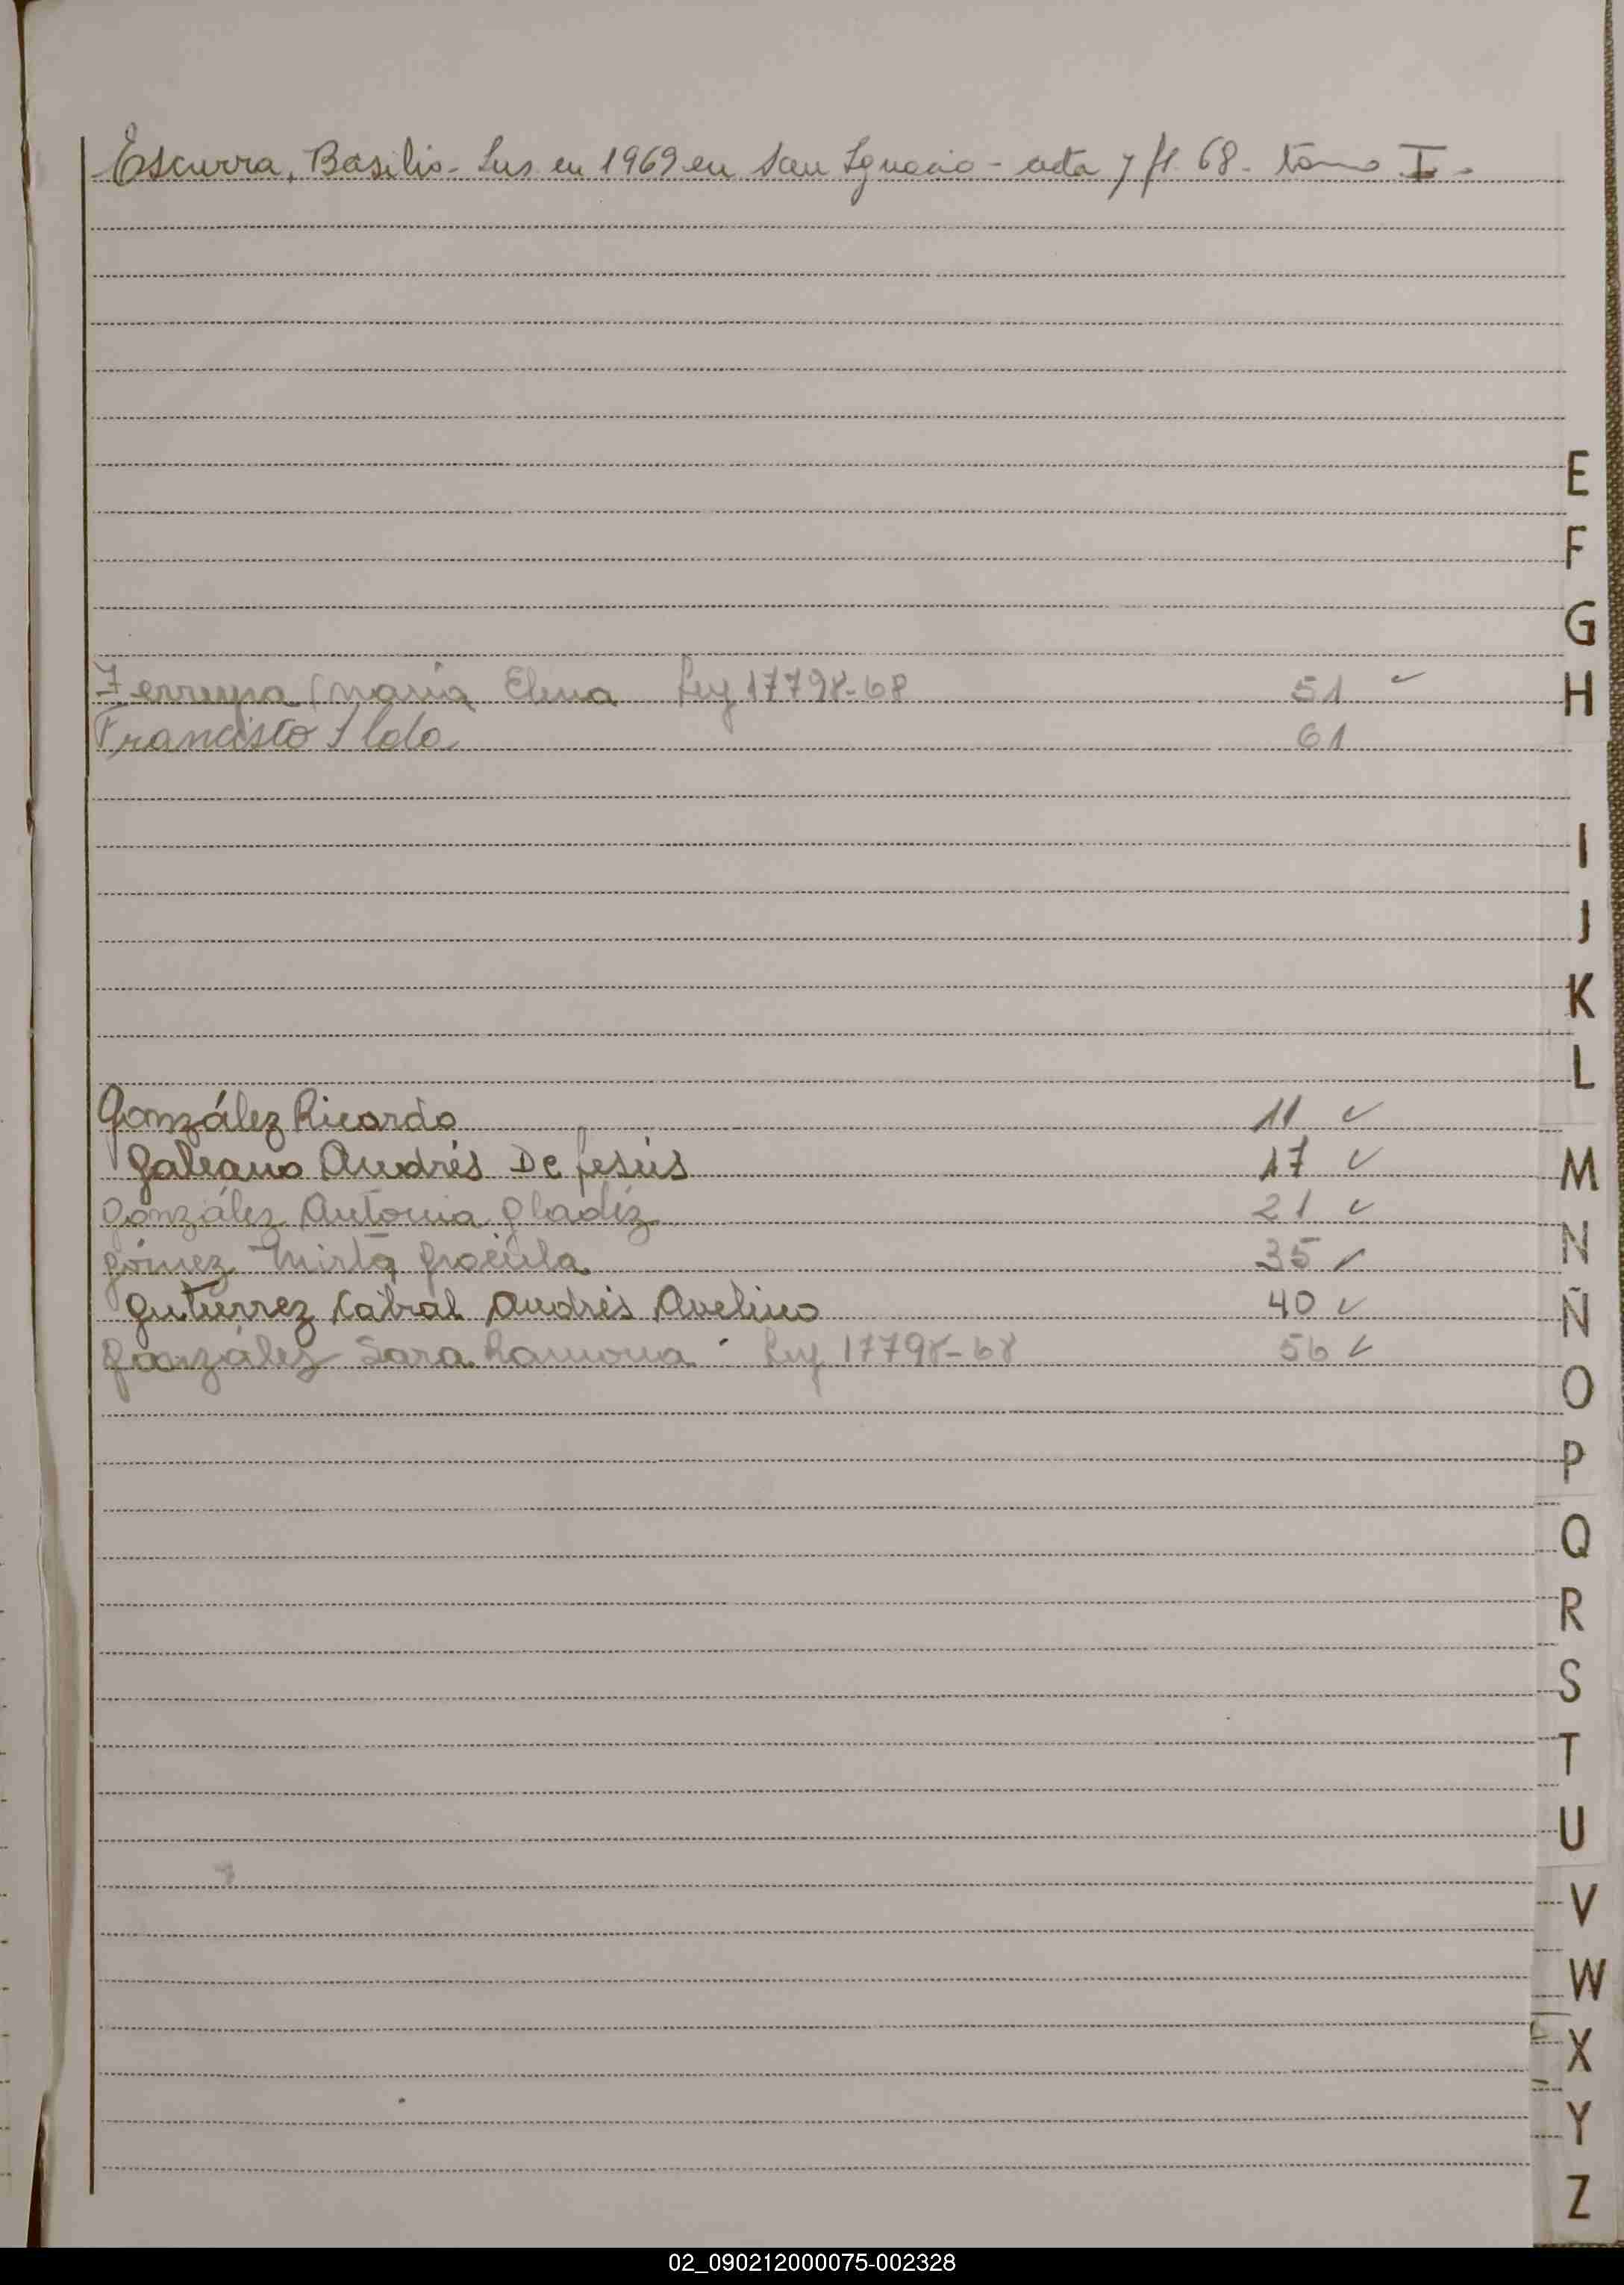 Escurra, Basilio - Ins. en 1969 en San Ignacio - acta 7 fl. 68 - tomo I -
E
F
G
Ferreyra María Elena Ley 17798-68 51 ✓
H
Francisco Ilda 61
I
J
K
L
González Ricardo 11 ✓
Galeano Andrés De Jesús 17 ✓
M
González Antonia Gladiz 21 ✓
N
Gómez Mirta 35 ✓
Gutierrez Cabral Andrés Avelino 40 ✓
Ñ
González Sara Ramona Ley 17798-68 56 ✓
O
P
Q
R
S
T
U
V
W
X
Y
Z
02_090212000075-002328